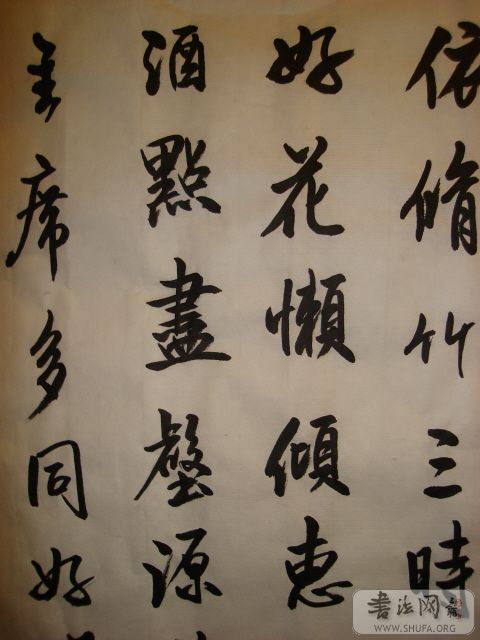 依脩竹三時
好花懶傾惠
酒點盡壑源
主席多同好
書法网
WWW.SHUFA.ORG